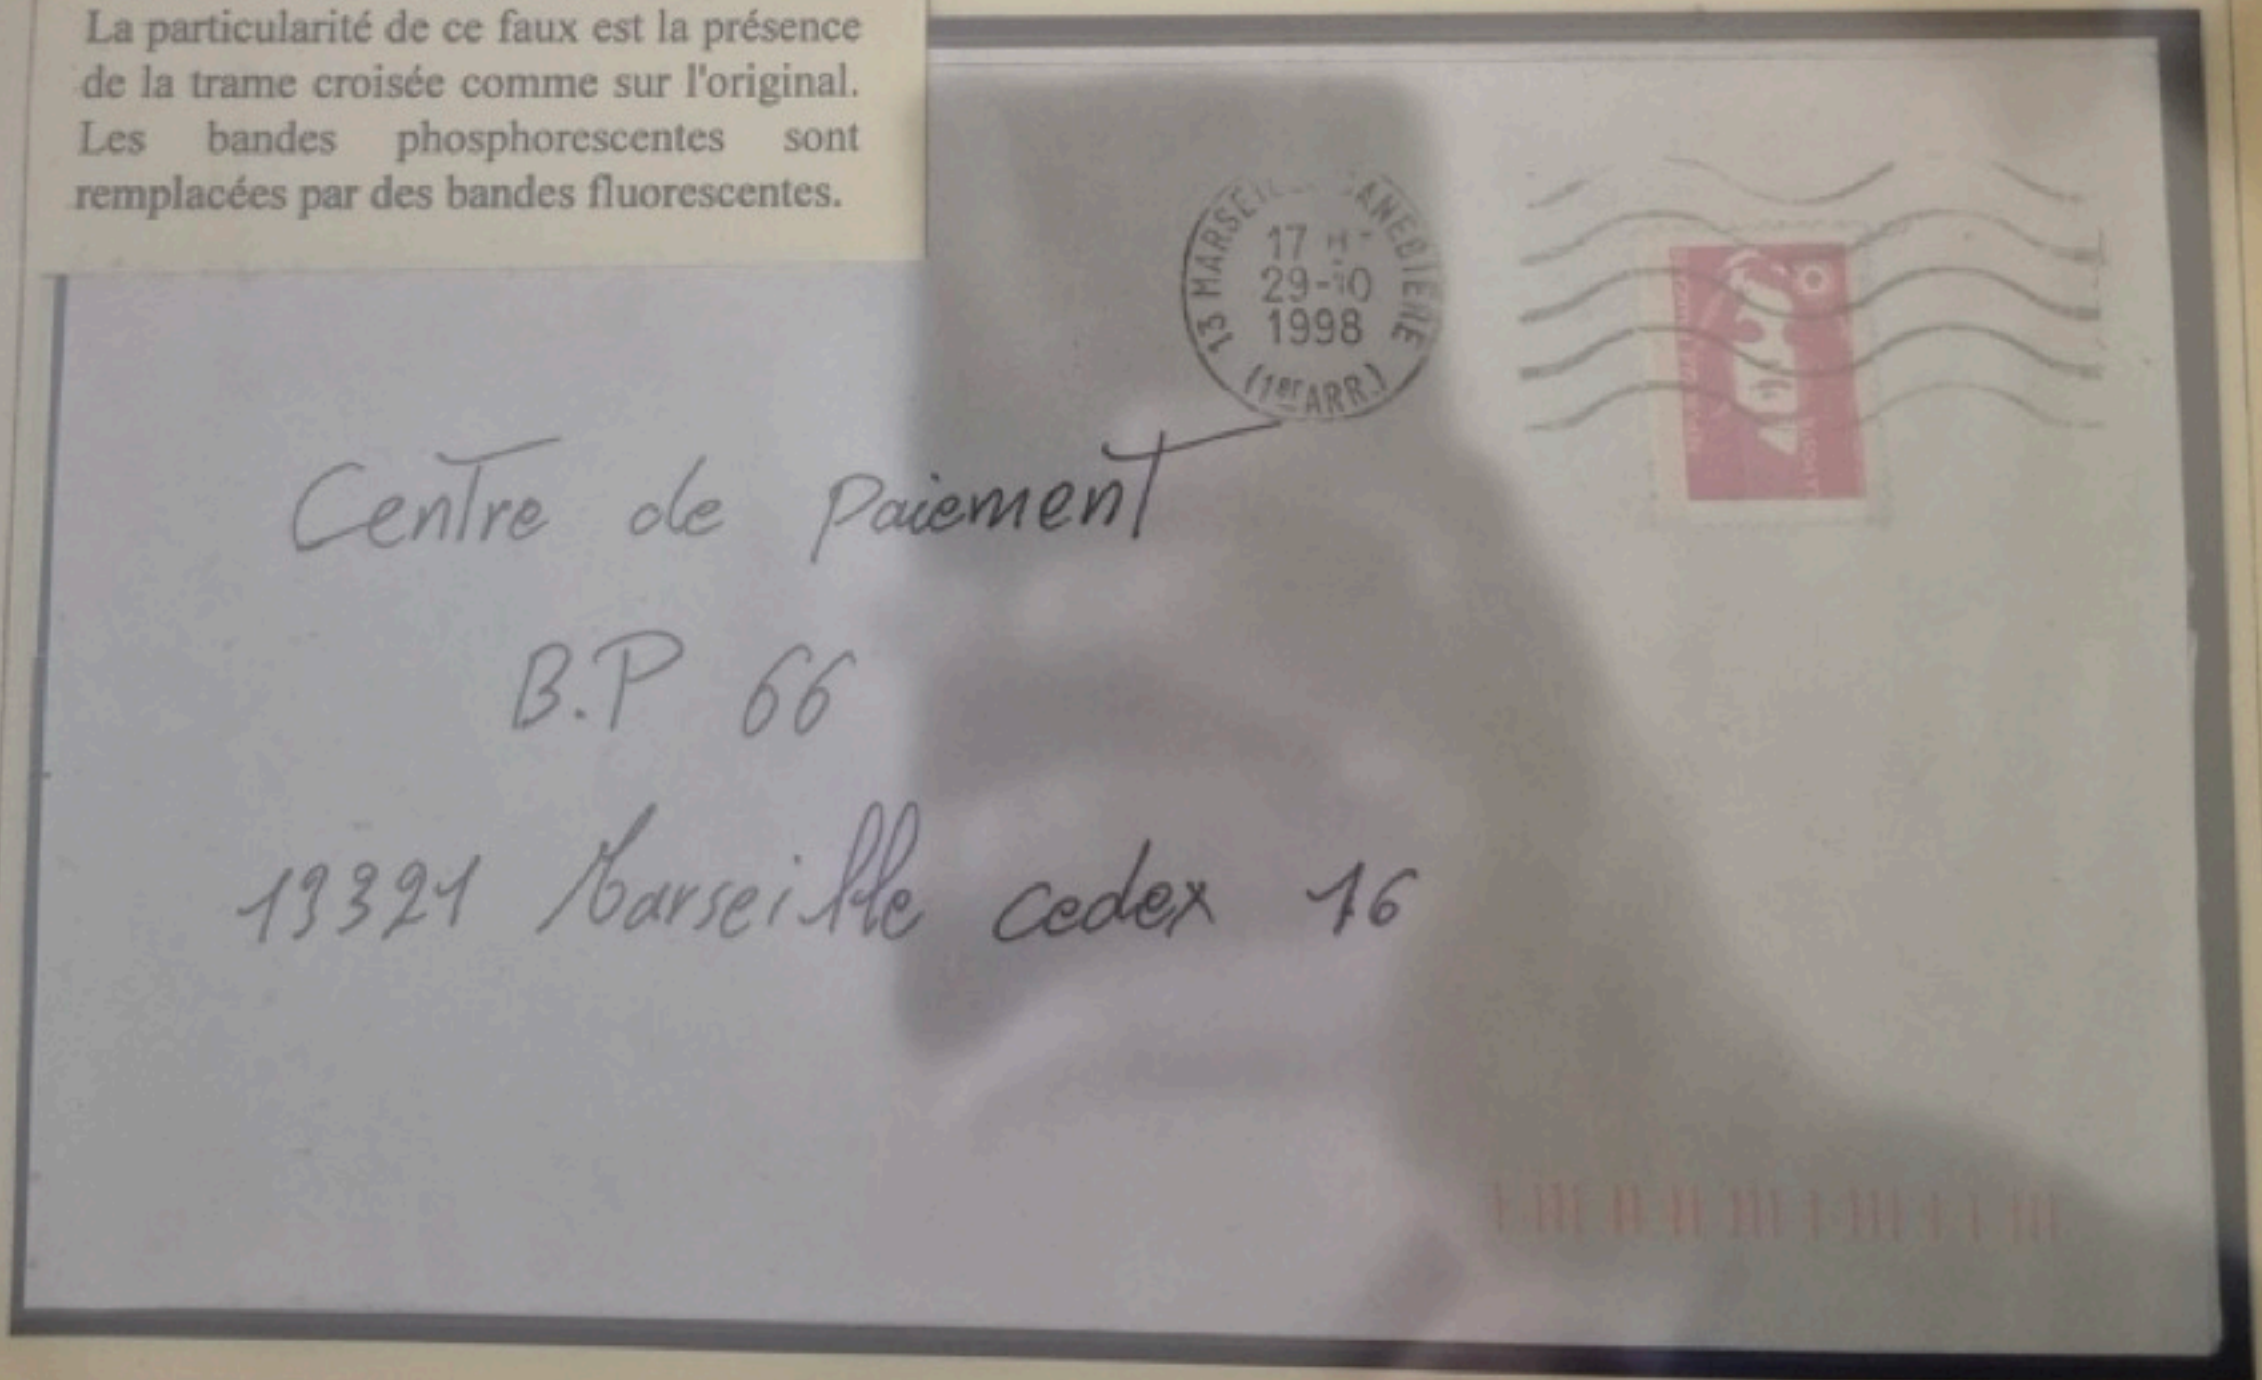 La particularité de ce faux est la présence
de la trame croisée comme sur l'original.
Les bandes phosphorescentes sont
remplacées par des bandes fluorescentes.
13 MARSEIL ANEBIERE
17 H
29-10
1998
(1er ARR.)
Centre de paiement
B.P 66
13321 Marseille cedex 16